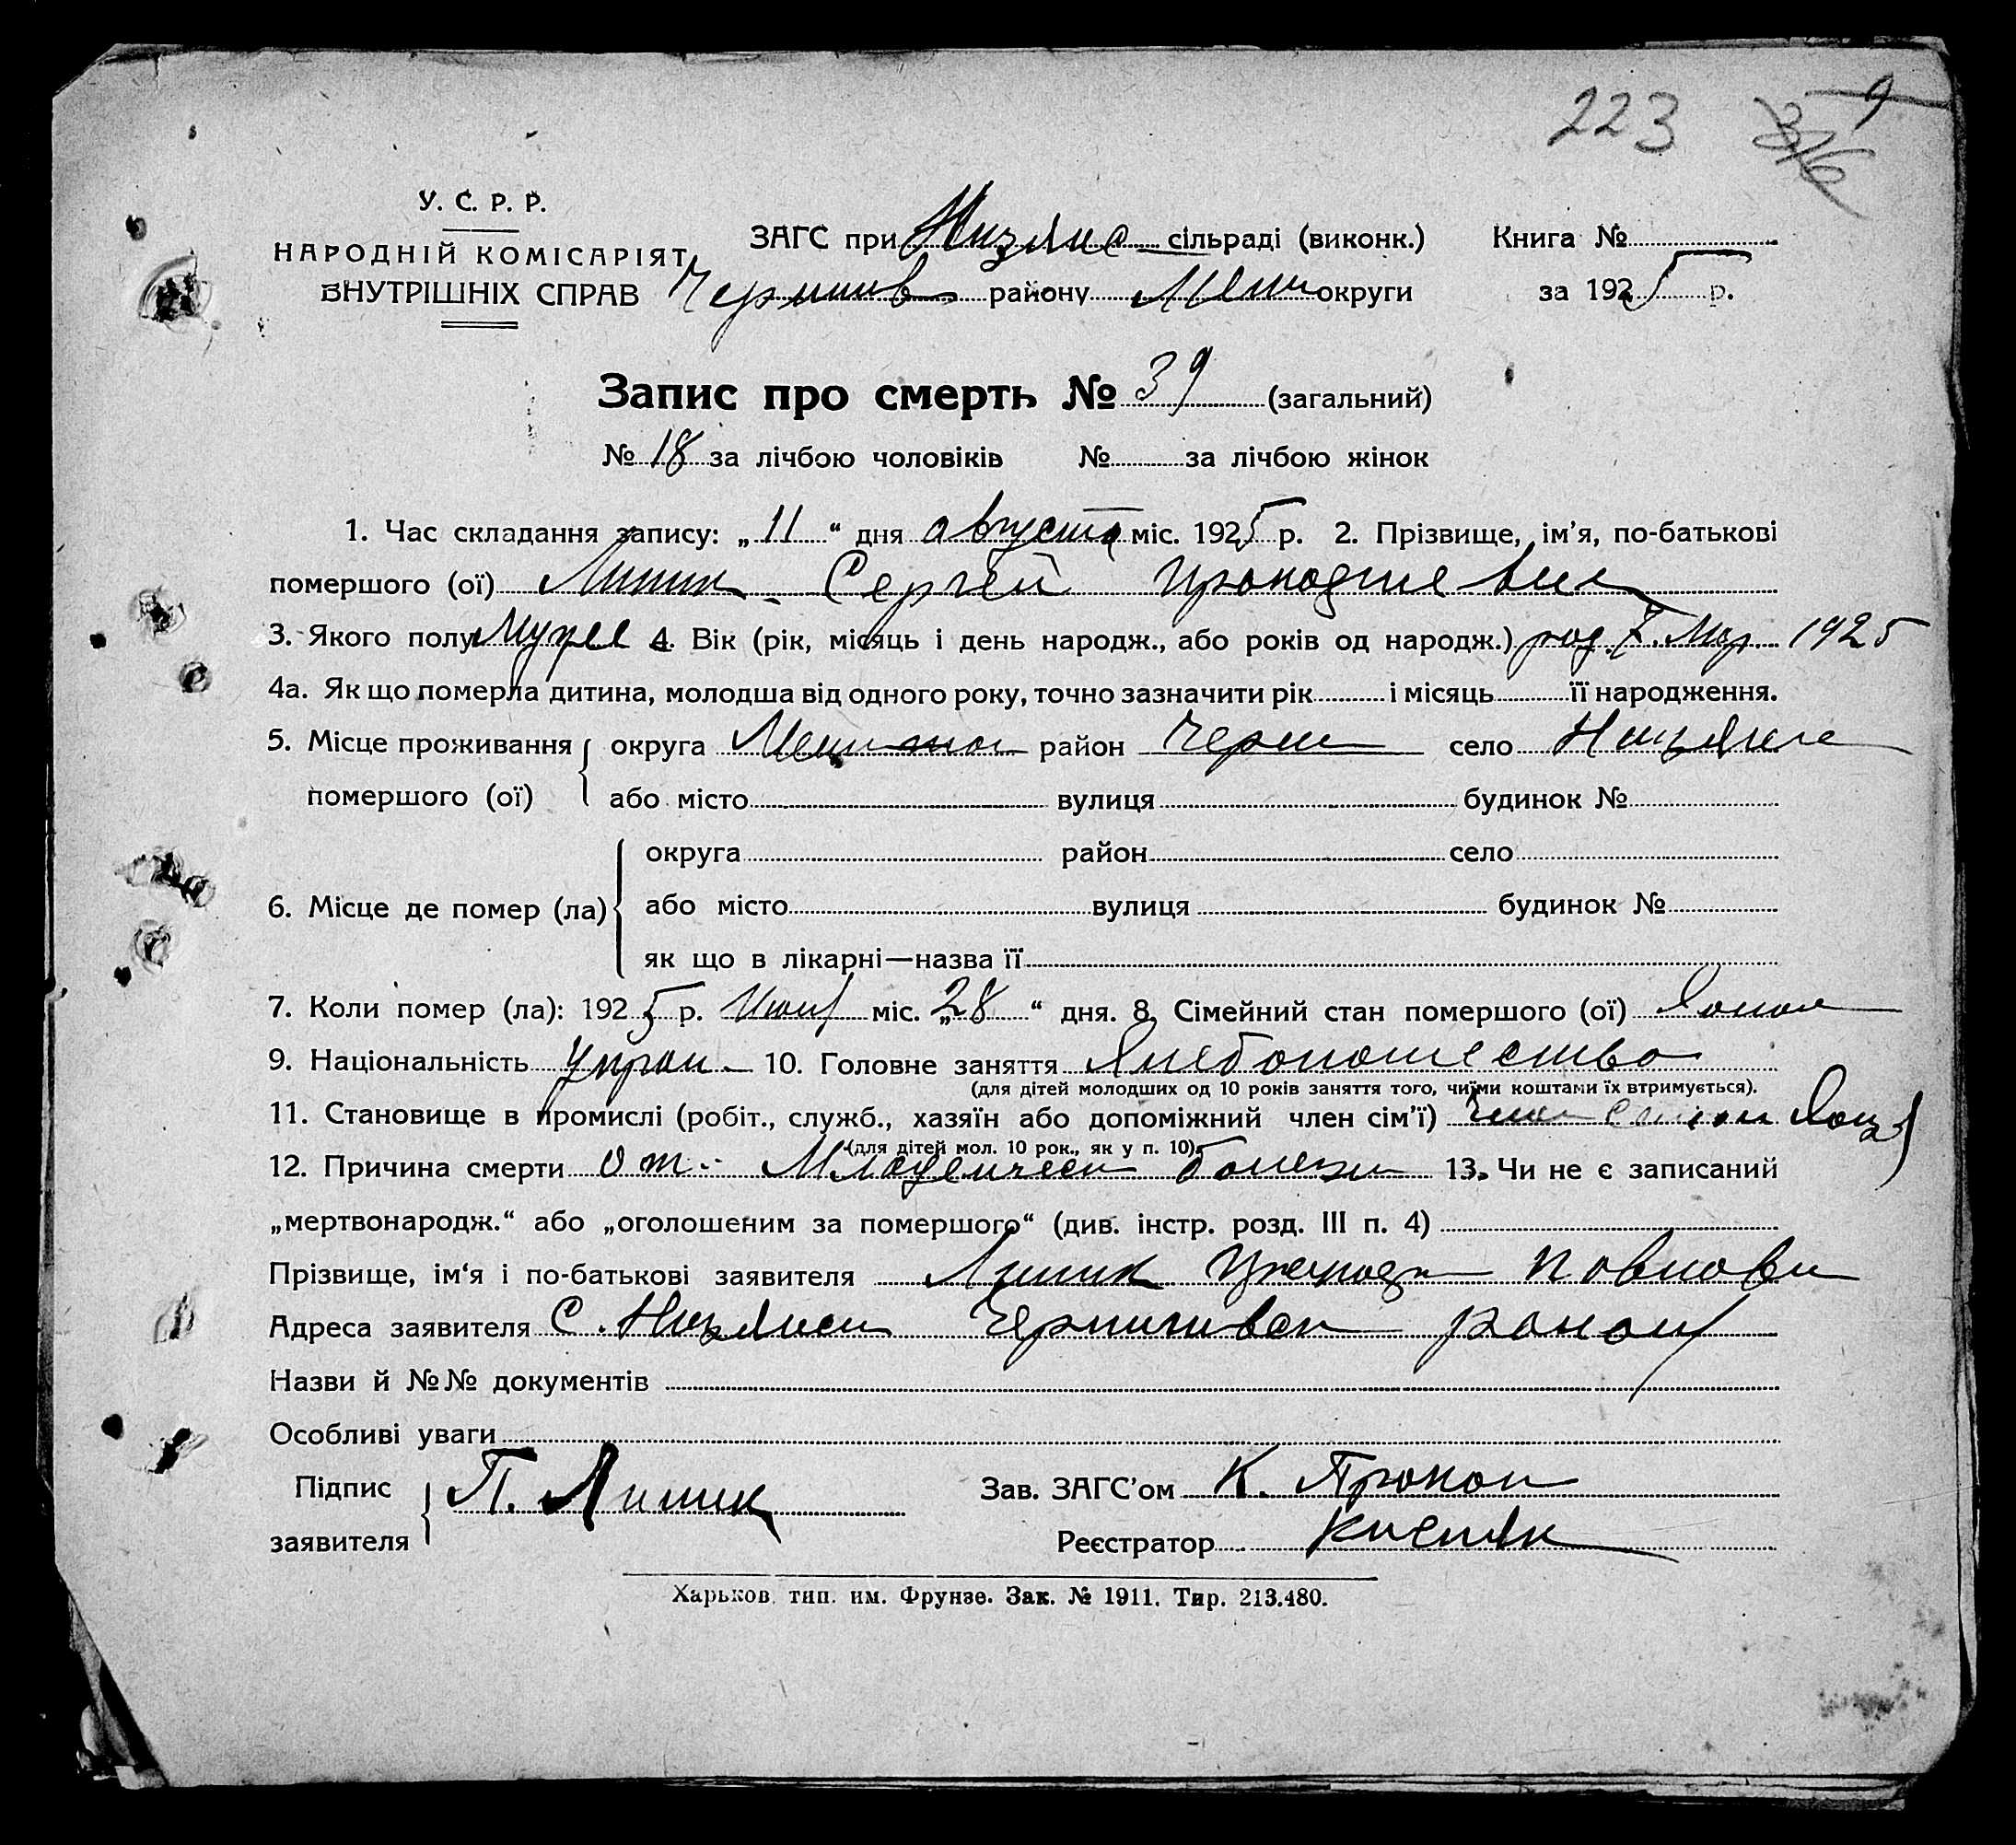 223 9
376
У. С. Р. Р.
НАРОДНІЙ КОМІСАРІЯТ
ВНУТРІШНІХ СПРАВ
ЗАГС при сільраді (виконк.) Книга №
району округи за 1925 р.
Запис про смерть № 39 (загальний)
№ 18 за лічбою чоловіків № за лічбою жінок
1. Час складання запису: „ 11 “ дня августа міс. 1925 р. 2. Прізвище, ім'я, по-батькові
помершого (ої) Сергей
3. Якого полу 4. Вік (рік, місяць і день народж., або років од народж.) род. 7. Мар. 1925
4а. Як що померла дитина, молодша від одного року, точно зазначити рік і місяць її народження.
5. Місце проживання округа район Черн село
помершого (ої) або місто вулиця будинок №
округа район село
6. Місце де помер (ла) або місто вулиця будинок №
як що в лікарні—назва її
7. Коли помер (ла): 1925 р. міс. „ 28 “ дня. 8. Сімейний стан помершого (ої) Холост
9. Національність Украин 10. Головне заняття Хлебопашество
(для дітей молодших од 10 років заняття того, чиїми коштами їх втримується).
11. Становище в промислі (робіт., служб., хазяїн або допоміжний член сім'ї) член семьи
(для дітей мол. 10 рок., як у п. 10).
12. Причина смерти от Младенческ болезн 13. Чи не є записаний
„мертвонародж.“ або „оголошеним за помершого“ (див. інстр. розд. III п. 4)
Прізвище, ім'я і по-батькові заявителя
Адреса заявителя С. Черниговск
Назви й №№ документів
Особливі уваги
Підпис П. Зав. ЗАГС'ом К.
заявителя Реєстратор
Харьков. тип. им. Фрунзе. Зак. № 1911. Тир. 213.480.